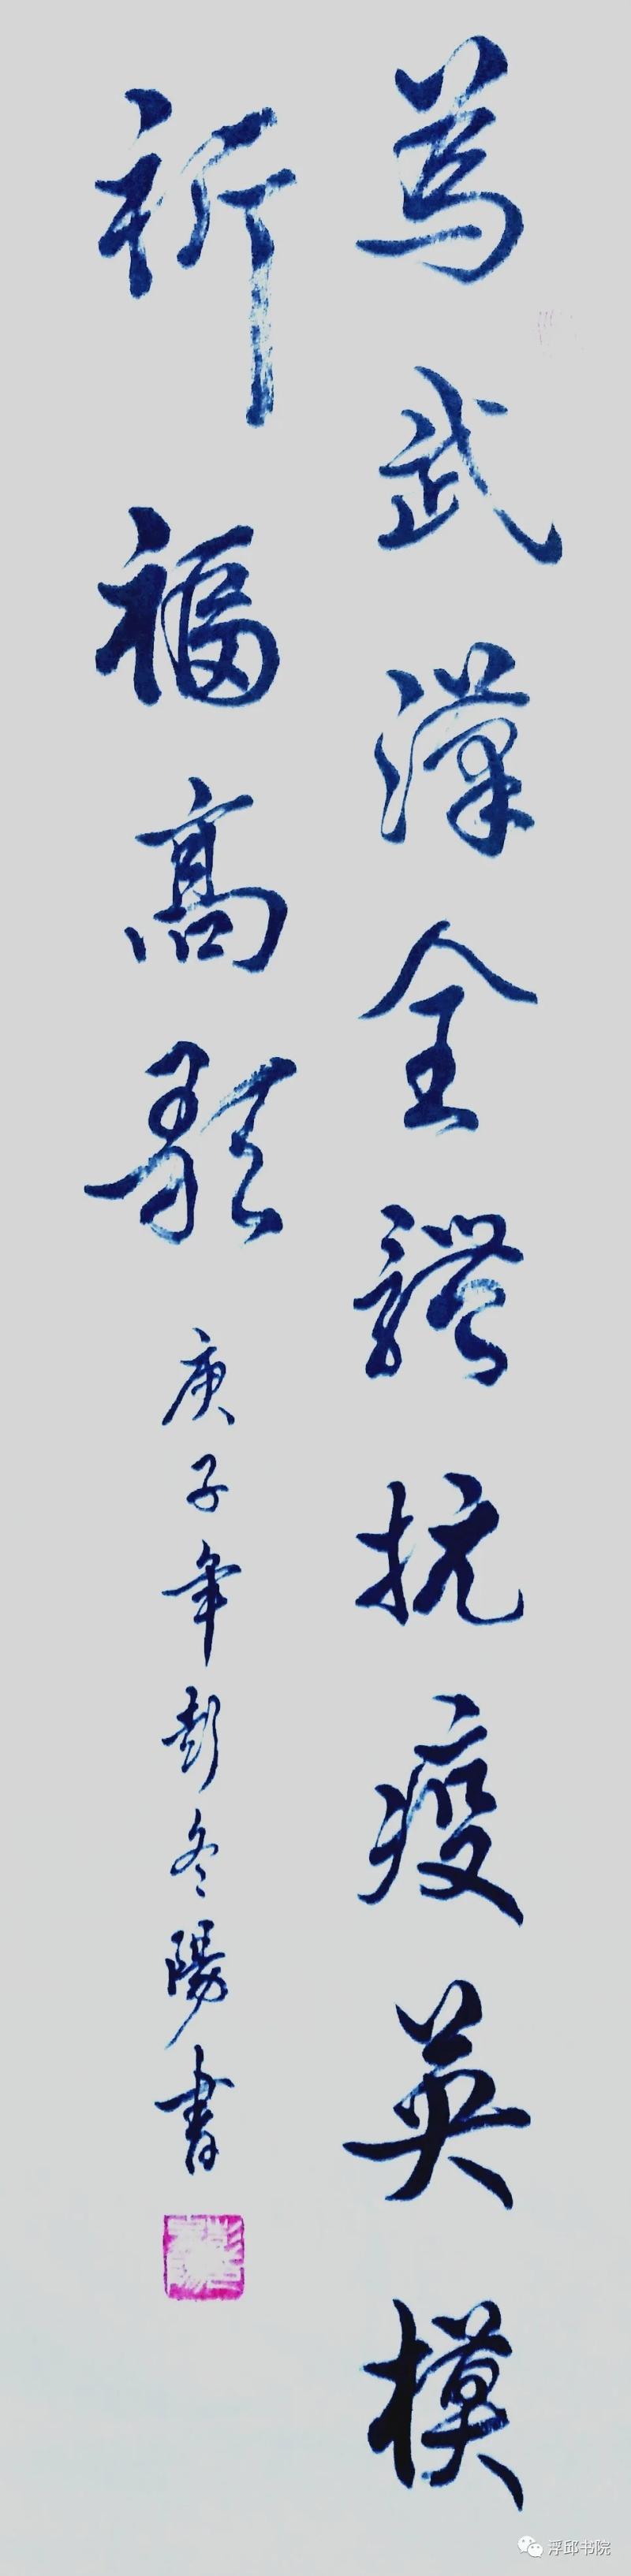 為武漢全體抗疫英模
祈福高歌 庚子年彭冬陽書
浮邱书院